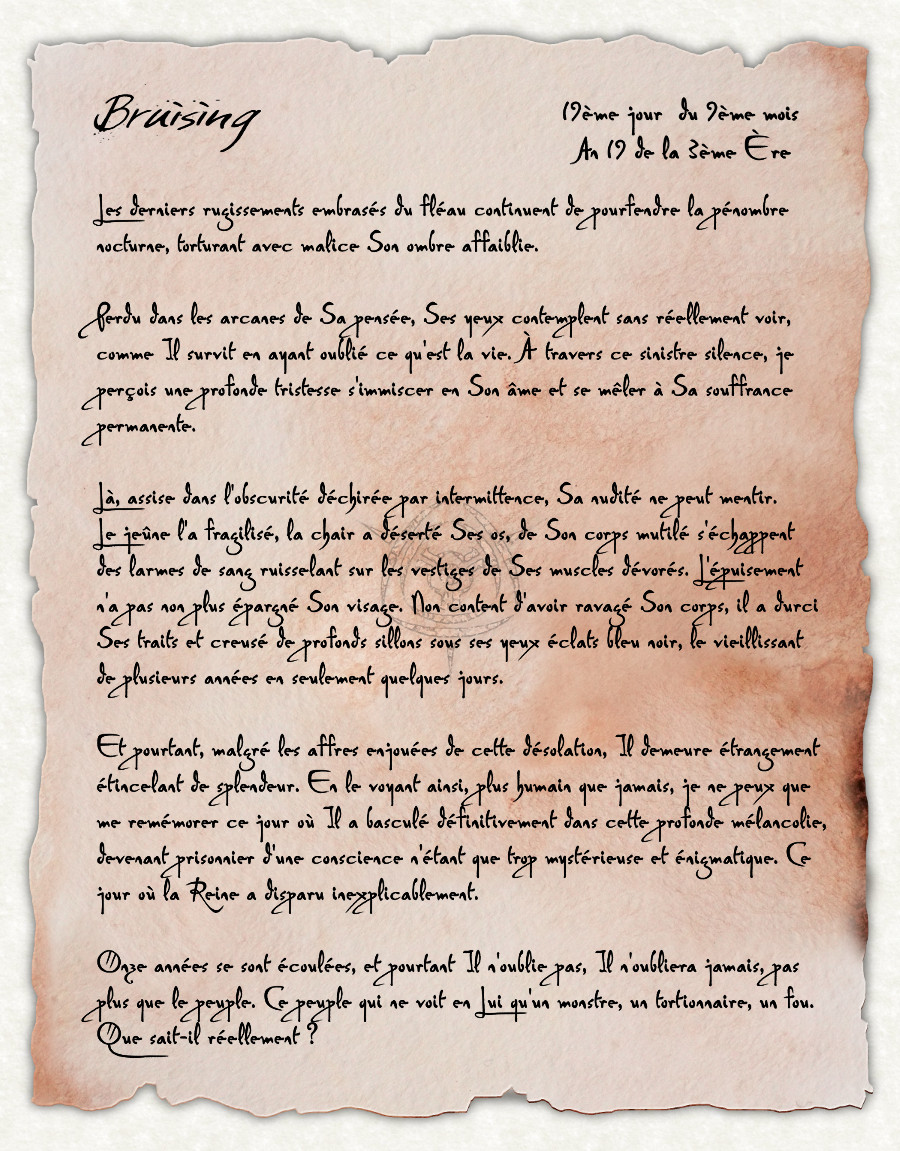 Bruising
19ème jour du 9ème mois
An 19 de la 3ème Ère
Les derniers rugissements embrasés du fléau continuent de pourfendre la pénombre
nocturne, torturant avec malice Son ombre affaiblie.
Perdu dans les arcanes de Sa pensée, Ses yeux contemplent sans réellement voir,
comme Il survit en ayant oublié ce qu'est la vie. À travers ce sinistre silence, je
perçois une profonde tristesse s'immiscer en Son âme et se mêler à Sa souffrance
permanente.
Là, assise dans l'obscurité déchirée par intermittence, Sa nudité ne peut mentir.
Le jeûne l'a fragilisé, la chair a déserté Ses os, de Son corps mutilé s'échappent
des larmes de sang ruisselant sur les vestiges de Ses muscles dévorés. L'épuisement
n'a pas non plus épargné Son visage. Non content d'avoir ravagé Son corps, il a durci
Ses traits et creusé de profonds sillons sous ses yeux éclats bleu noir, le vieillissant
de plusieurs années en seulement quelques jours.
Et pourtant, malgré les affres enjouées de cette désolation, Il demeure étrangement
étincelant de splendeur. En le voyant ainsi, plus humain que jamais, je ne peux que
me remémorer ce jour où Il a basculé définitivement dans cette profonde mélancolie,
devenant prisonnier d'une conscience n'étant que trop mystérieuse et énigmatique. Ce
jour où la Reine a disparu inexplicablement.
Onze années se sont écoulées, et pourtant Il n'oublie pas, Il n'oubliera jamais, pas
plus que le peuple. Ce peuple qui ne voit en Lui qu'un monstre, un tortionnaire, un fou.
Que sait-il réellement ?